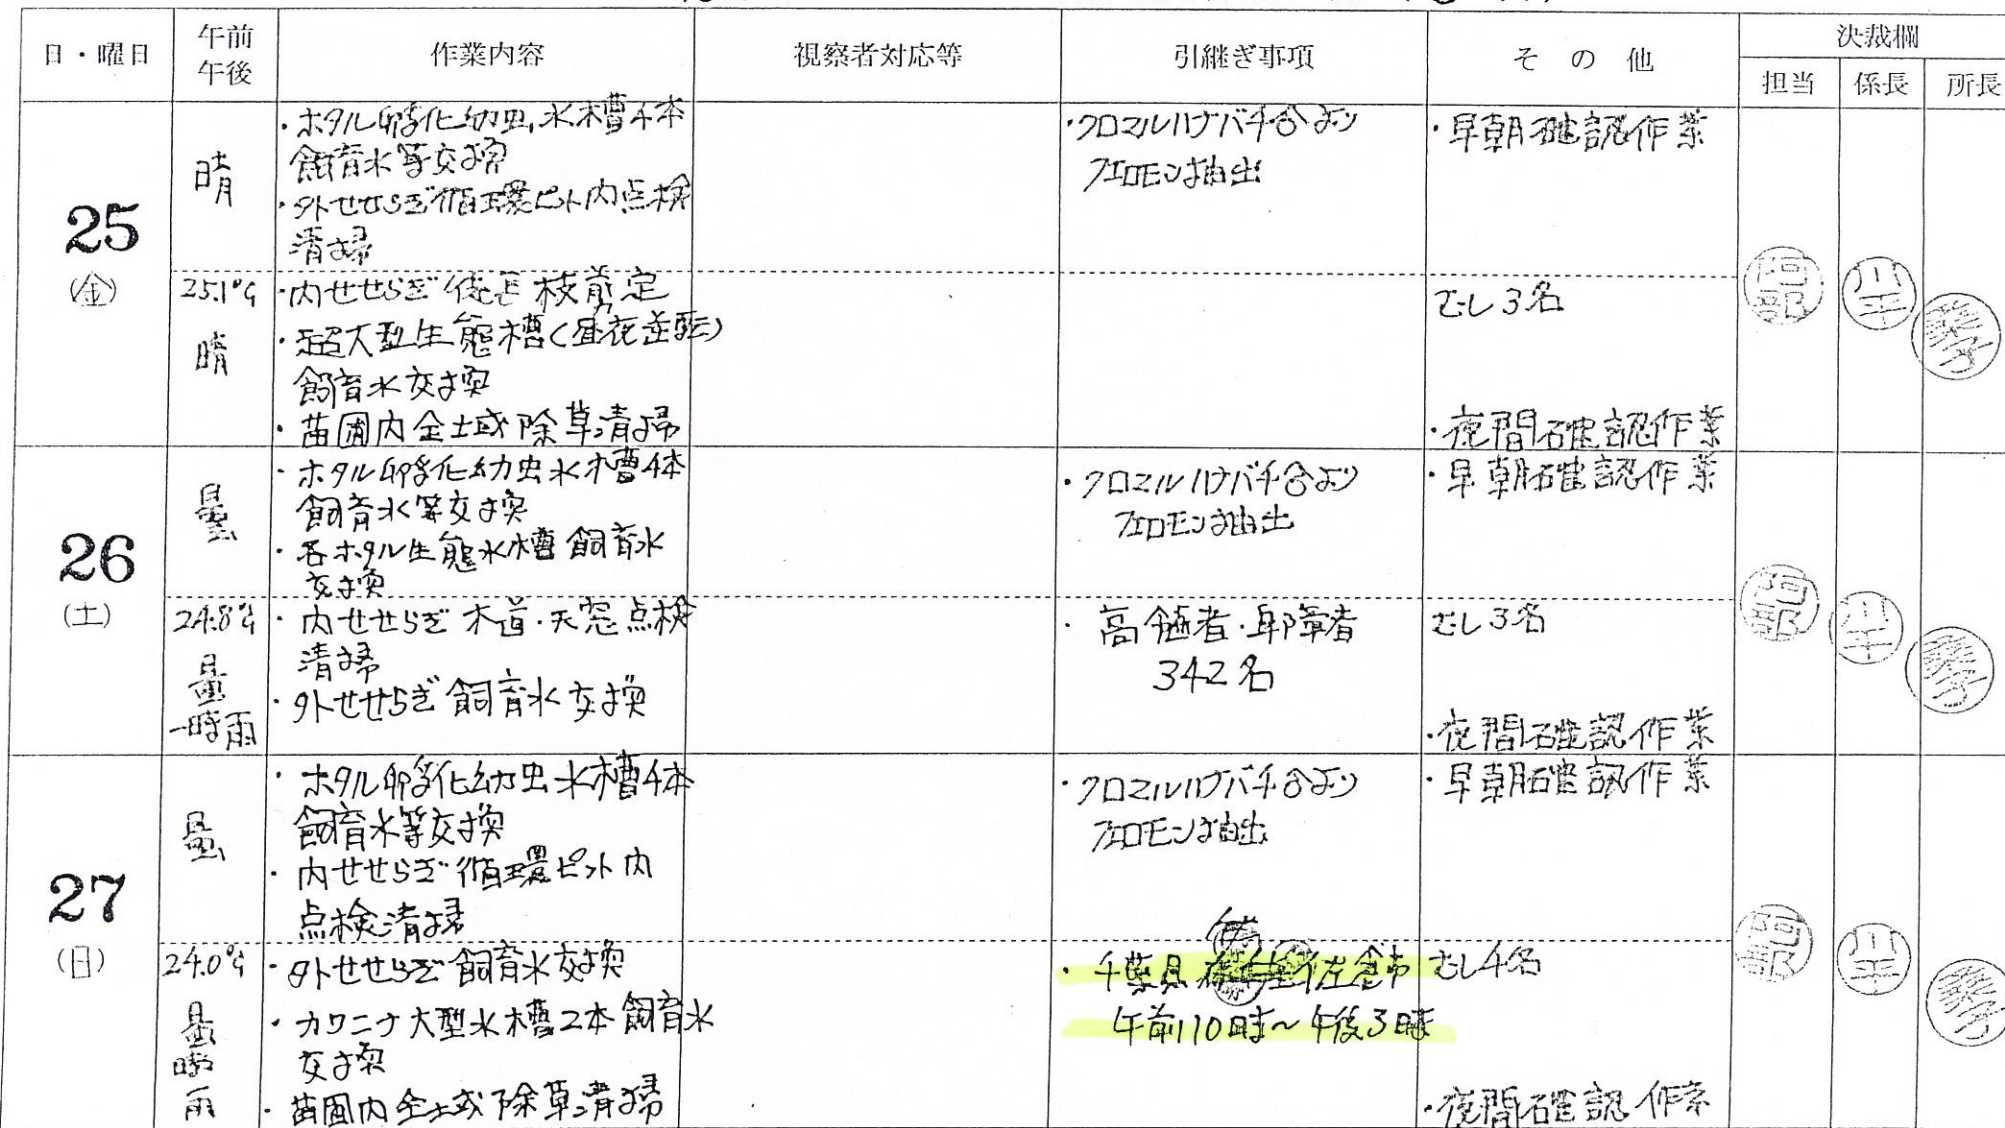 日・曜日
午前
午後
作業内容
視察者対応等
引継ぎ事項
その他
決裁欄
担当
係長
所長
25
(金)
晴
・ホタル孵化幼虫水槽4本
飼育水等交換
・外せせらぎ循環ピット内点検
清掃
・クロマルハナバチ合より
フェロモン抽出
・早朝確認作業
25.1℃
晴
・内せせらぎ 枝剪定
・超大型生態槽(昼夜逆転)
飼育水交換
・苗圃内全土域除草清掃
むし3名
・夜間確認作業
阿部
川平
26
(土)
曇
・ホタル孵化幼虫水槽4本
飼育水等交換
・各ホタル生態水槽飼育水
交換
・クロマルハナバチ合より
フェロモン抽出
・早朝確認作業
24.8℃
曇
一時雨
・内せせらぎ木道・天窓点検
清掃
・外せせらぎ飼育水交換
・高齢者・障害者
342名
むし3名
・夜間確認作業
阿部
川平
27
(日)
曇
・ホタル孵化幼虫水槽4本
飼育水等交換
・内せせらぎ循環ピット内
点検清掃
・クロマルハナバチ合より
フェロモン抽出
・早朝確認作業
24.0℃
曇
時
雨
・外せせらぎ飼育水交換
・カワニナ大型水槽2本飼育水
交換
・苗圃内全土域除草清掃
・千葉県 佐倉市
午前10時～午後3時
むし4名
・夜間確認作業
阿部
川平